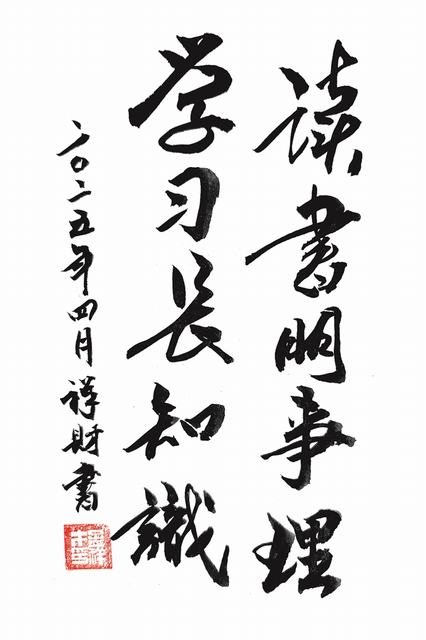 读書明事理
学习長知識
二〇二五年四月祥财書